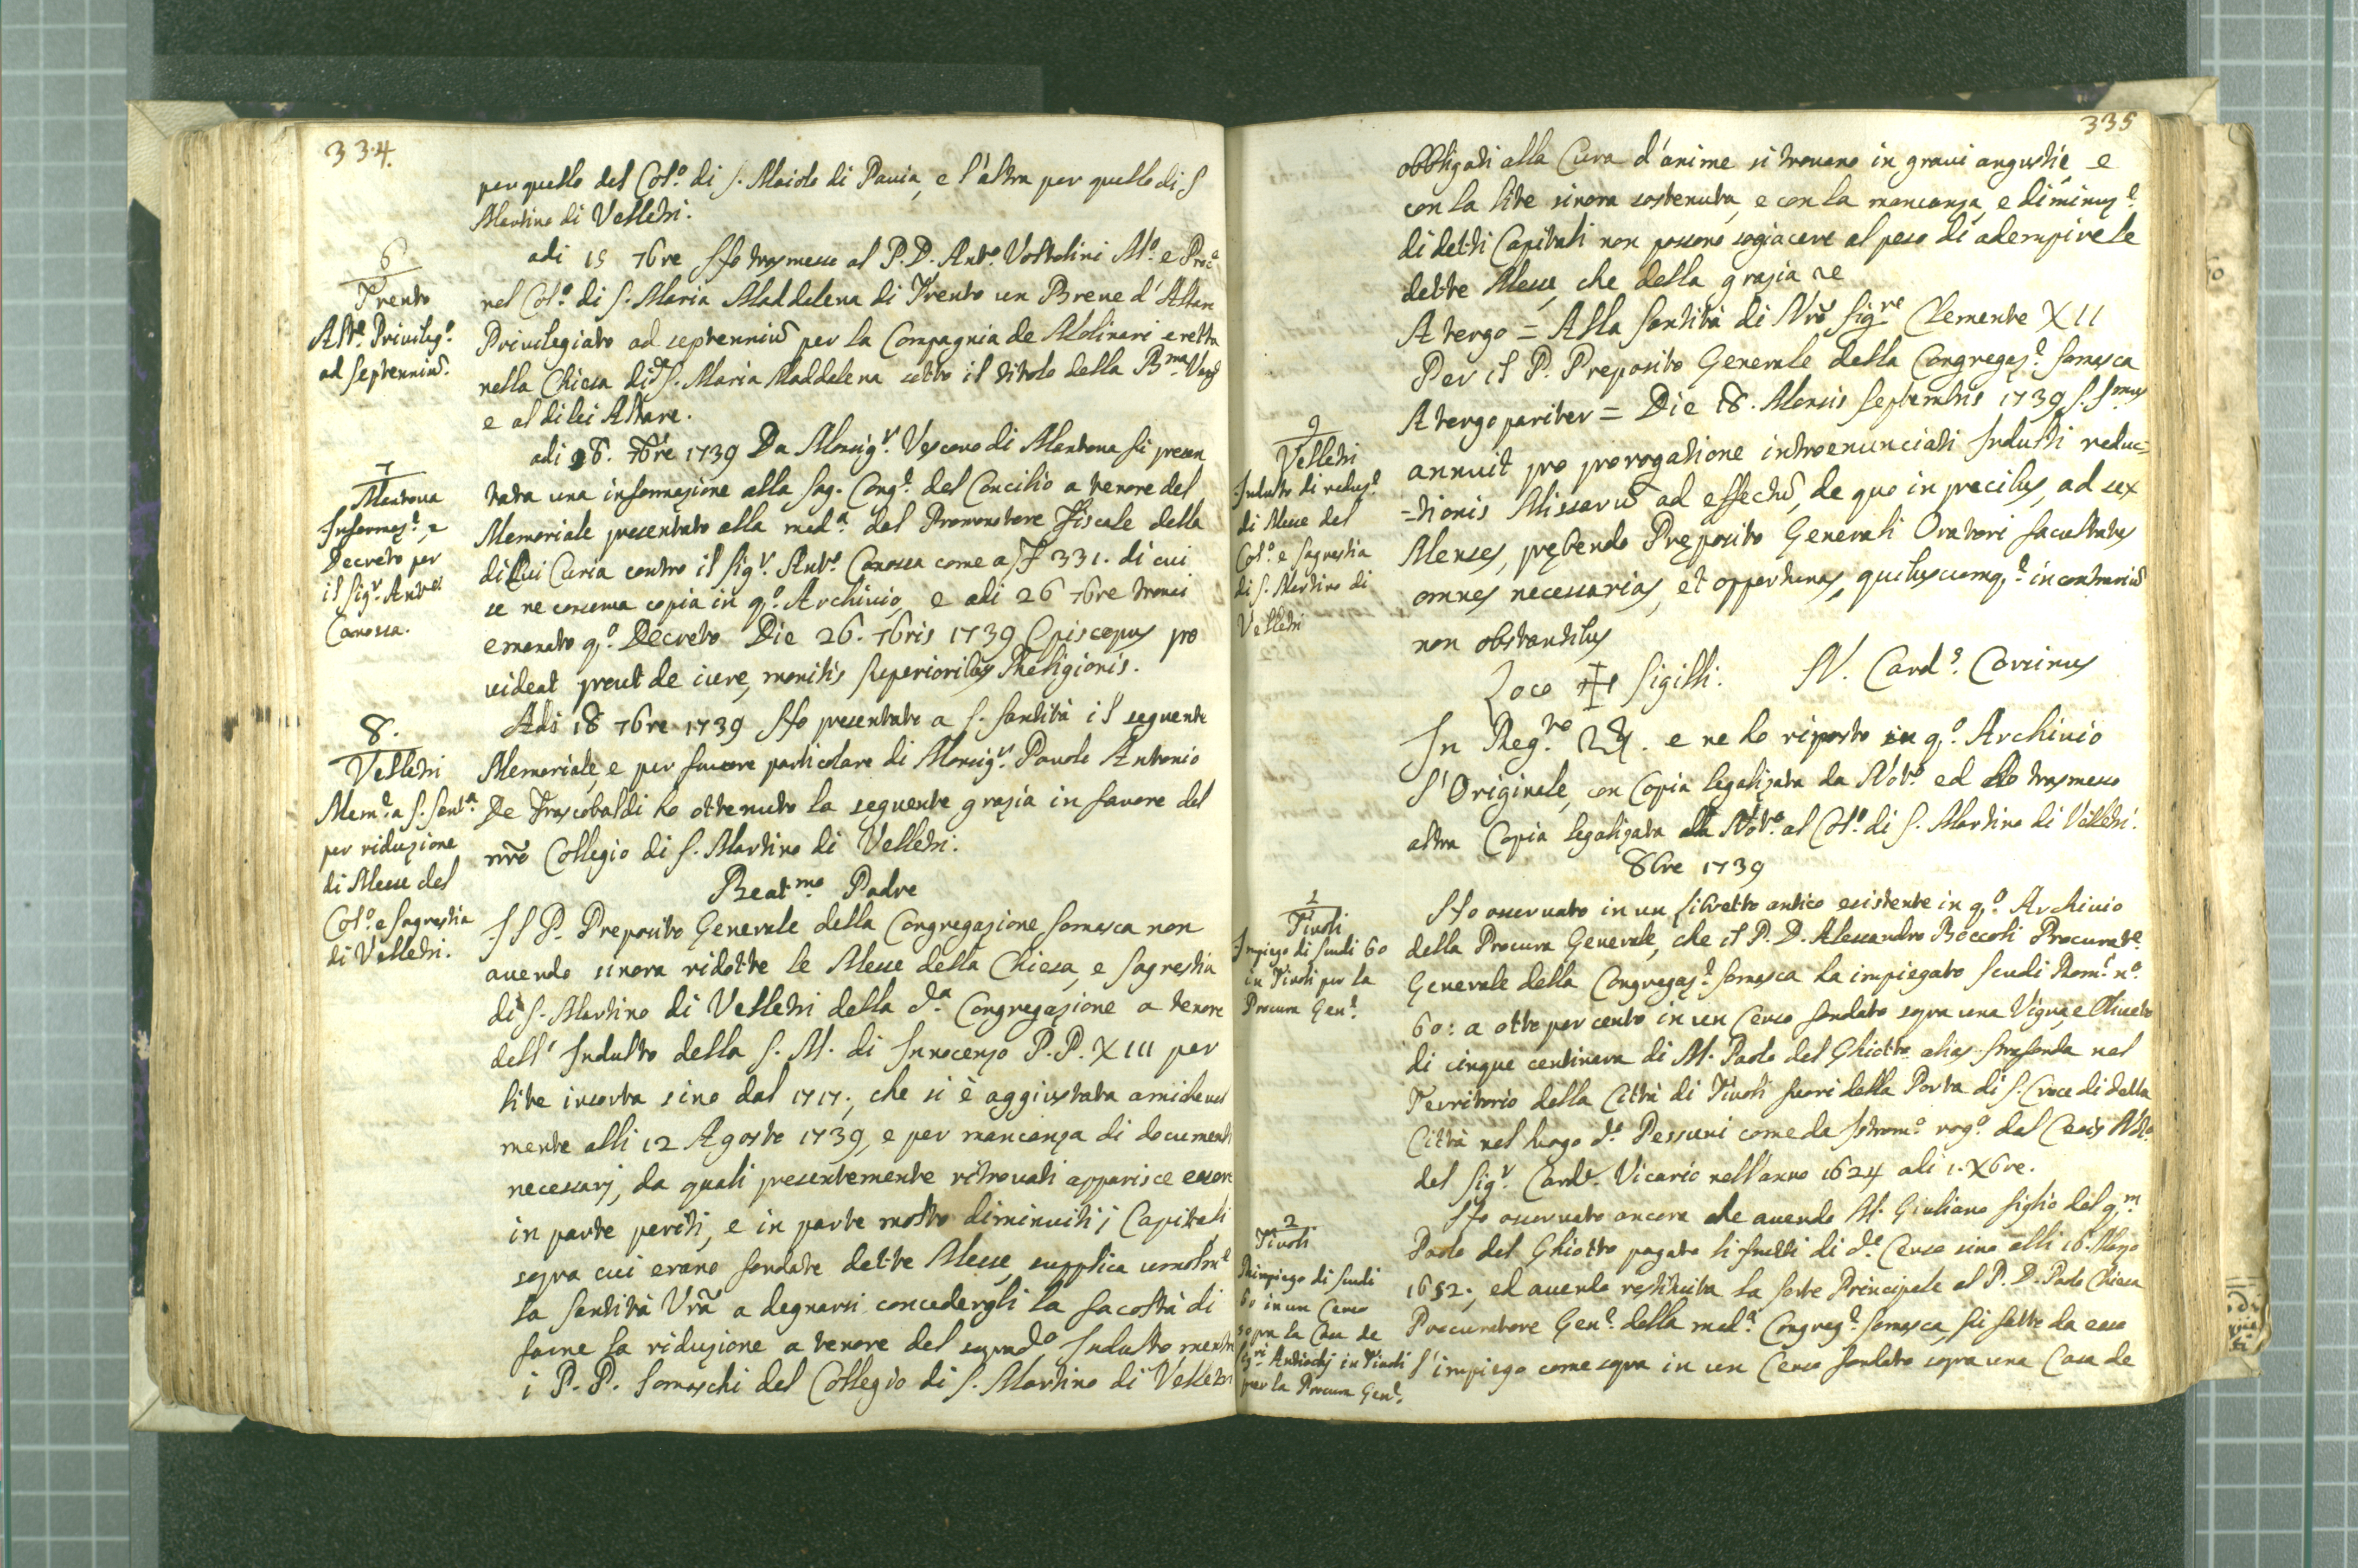 334.
per quello del Col.º di S. Maiolo di Pavia, e l'altra per quello di S
Martino di Velletri.
6
Trento
Alt.e Privileg.º
ad septenniũ.
adi 15 7bre Ho trasmesso al P. D. Ant.º Vostolini M.º e Proc.e
nel Col.º di S. Maria Maddalena di Trento un Breve d'Altare
Privilegiato ad septenniũ per la Compagnia de Molinari eretta
nella Chiesa di d.a S. Maria Maddalena sotto il titolo della B.ma Verg
e al di lei Altare.
7
Mantova
Informaz.e, e
Decreto per
il Sig.r Ant.º
Canossa.
adi 18. 7bre 1739 Da Monsig.r Vescovo di Mantova fù presen
tata una informazione alla Sag. Cong.e del Concilio a tenore del
Memoriale presentato alla med.a dal Promonotore Fiscale della
di lui Curia contro il Sig.r Ant.º Canossa come a f 331. di cui
se ne conserva copia in q.º Archivio, e adi 26 7bre trovai
emanato q.º Decreto Die 26. 7bris 1739 Episcopus pro
videat prout de iure, monitis Superioribus Religionis.
8.
Velletri
Mem.e a S. Sant.a
per riduzione
di Messe del
Col.º e Sagrestia
di Velletri.
Adi 18 7bre 1739 Ho presentato a S. Santità il seguente
Memoriale, e per favore particolare di Monsig.r Pavolo Antonio
De Frascobaldi ho ottenuto la seguente grazia in favore del
nrõ Collegio di S. Martino di Velletri.
Beat.mo Padre
Il P. Preposito Generale della Congregazione Somasca non
avendo sinora ridotte le Messe della Chiesa, e Sagrestia
di S. Martino di Velletri della d.a Congregazione a tenore
dell' Indulto della S. M. di Innocenzo P.P. XIII per
lite insorta sino dal 1717., che si è aggiustata amichevol
mente alli 12 Agosto 1739, e per mancanza di documenti
necessarj, da quali presentemente ritrovati apparisce essere
in parte periti, e in parte molto diminuiti i Capitali
sopra cui erano fondate dette Messe, supplica umilm.e
la Santità Vrã a degnarsi concedergli la facoltà di
farne la riduzione a tenore del soprad.º Indulto mentre
i P. P. Somaschi del Collegio di S. Martino di Velletri
335
obbligati alla Cura d'anime si trovano in gravi angustie, e
con la lite sinora sostenuta, e con la mancanza, e diminuz.e
di detti Capitali non possono sogiacere al peso di adempire le
dette Messe, che della grazia &e
A tergo = Alla Santità di Nrõ Sig.re Clemente XII
Per il P. Preposito Generale della Congregaz.e Somasca
9
Velletri
Indulto di reduz.e
di Messe del
Col.º e Sagrestia
di S. Martino di
Velletri
A tergo pariter = Die 18. Mensis Septembris 1739 S.S.mus
annuit pro prorogatione introenunciati Indulti reduc=
=tionis Missarũ ad effectũ, de quo in precibus, ad sex
Menses, prębendo Pręposito Generali Oratori facultates
omnes necessarias, et opportunas, quibuscumq.e in contrariũ
non obstantibus
Loco ✠ Sigilli. N. Card.s Corsinus
In Reg.ro 2.. e ne ho riposto in q.º Archivio
l'Originale, con Copia legalizata da Not.º ed ho trasmesso
altra Copia legalizata da Not.º al Col.º di S. Martino di Velletri.
8bre 1739
1
Tivoli
Impiego di scudi 60
in Tivoli per la
Procura Gen.e
Ho osservato in un libretto antico esistente in q.º Archivio
della Procura Generale, che il P. D. Alessandro Boccoli Procurat.e
Generale della Congregaz.e Somasca ha impiegato scudi Rom.i n.º
60: a otto per cento in un Censo fondato sopra una Vigna, e Oliveto
di cinque centinara di M. Paolo del Ghiotto alias nel
Territorio della Città di Tivoli fuori della Porta di S. Croce di detta
Città nel luogo d.º Pessuni come da Istrom.º rog.º dal Not.º
del Sig.r Card.e Vicario nell'anno 1624 adi 1. Xbre.
2
Tivoli
Rimpiego di scudi
60 in un Censo
sopra la Casa de
Sig.ri Antiochj in Tivoli
per la Procura Gen.e
Ho osservato ancora che avendo M. Giuliano figlio del q.m
Paolo del Ghiotto pagato li frutti di d.º Censo sino alli 16. Marzo
1652., ed avendo restituita la sorte Principale al P. D. Paolo Chiesa
Procuratore Gen.e della med.a Congreg.e Somasca, fù fatto da esso
l'impiego come sopra in un Censo fondato sopra una Casa de